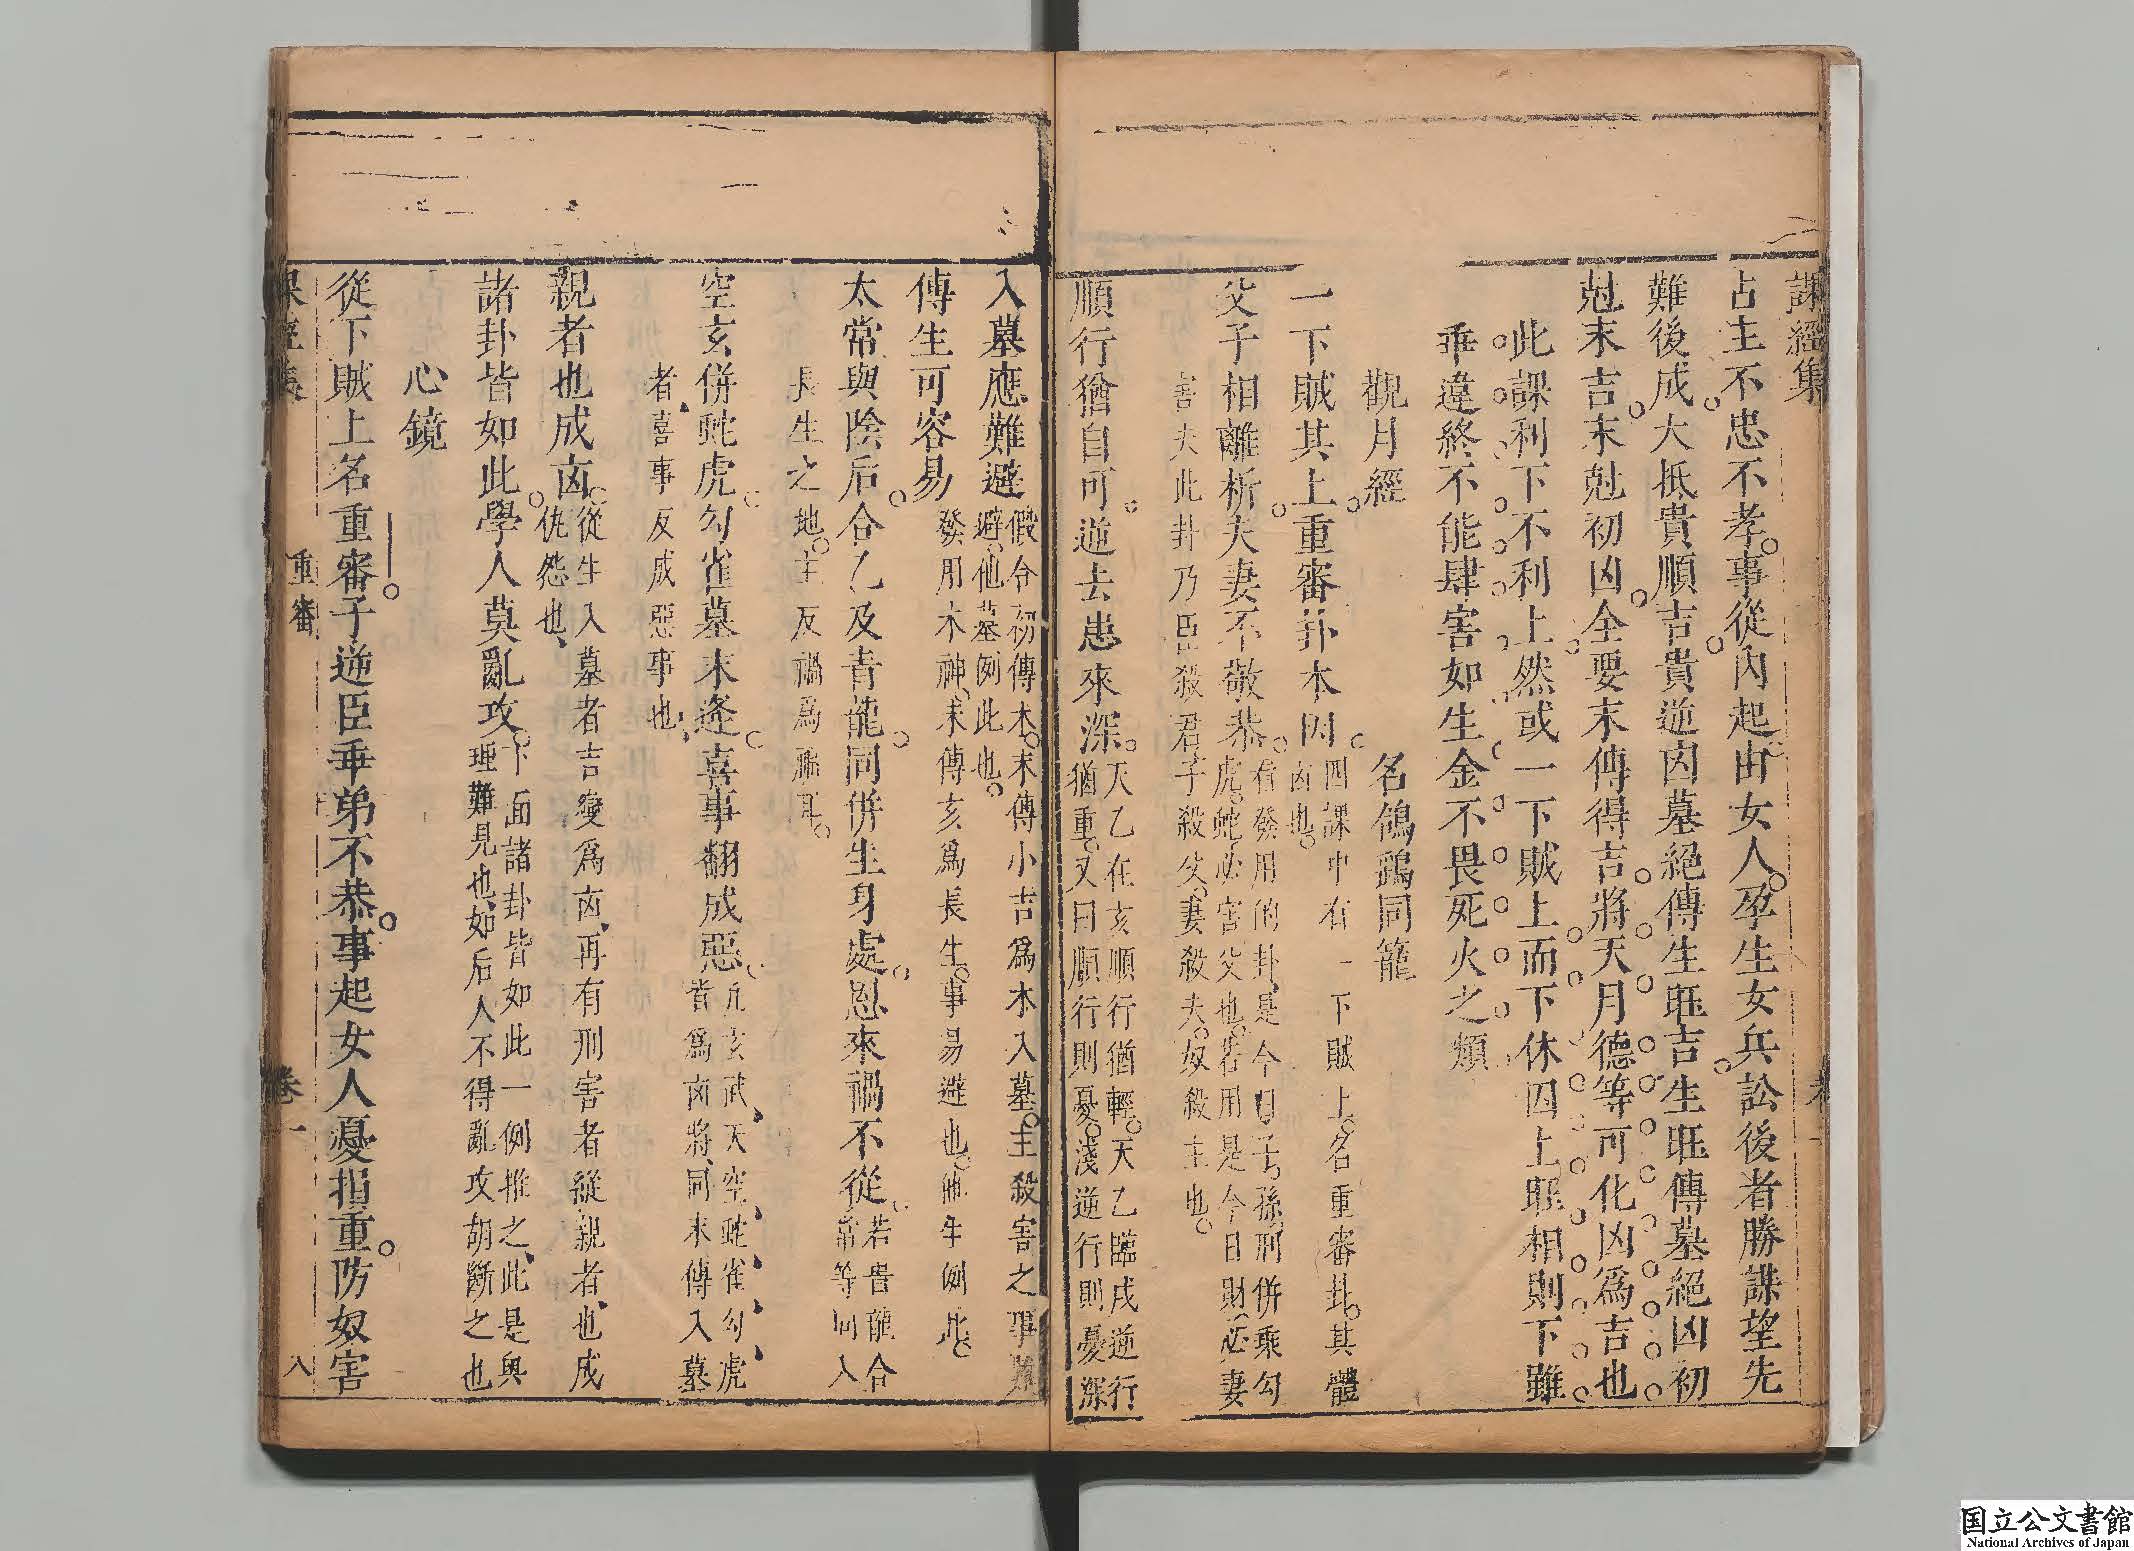 課經集
占主不忠不孝事從內起由女人孕生女兵訟後者勝謀望先
難後成大抵貴順吉貴逆凶墓絕傳生旺吉生旺傳墓絕凶初
尅末吉末尅初凶全要末傳得吉將天月德等可化凶爲吉也
此課利下不利上然或一下賊上而下休囚上旺相則下雖
乖違終不能肆害如生金不畏死火之類
觀月經 名鴿鷂同籠
一下賊其上重審卦本凶四課中有一下賊上名重審卦其體
凶也
父子相離析夫妻不敬恭看發用的卦是今日子孫刑併乘勾
虎蛇必害父也若用是今日財必妻
害夫此卦乃臣殺君子殺父妻殺夫奴殺主也
順行猶自可逆去患來深天乙在亥順行猶輕天乙臨戌逆行
猶重又曰順行則憂淺逆行則憂深
入墓應難避假令初傳木末傳小吉爲木入墓主殺害之事難
避他墓例此也
傳生可容易發用木神末傳亥爲長生事易避也他生例此
太常與陰后合乙及青龍同併生身處恩來禍不從若貴龍合
常等同入
長生之地主反禍爲福耳
空亥併蛇虎勾雀墓末逢喜事翻成惡凡玄武天空蛇雀勾虎
皆爲凶將同末傳入墓
者喜事反成惡事也
親者也成凶從生入墓者吉變爲凶再有刑害者縱親者也成
仇怨也
諸卦皆如此學人莫亂攻下面諸卦皆如此一例推之此是與
理難見也如后人不得亂攻胡斷之也
心鏡
從下賊上名重審子逆臣乖弟不恭事起女人憂損重防奴害
重審
卷一
八
国立公文書館
National Archives of Japan